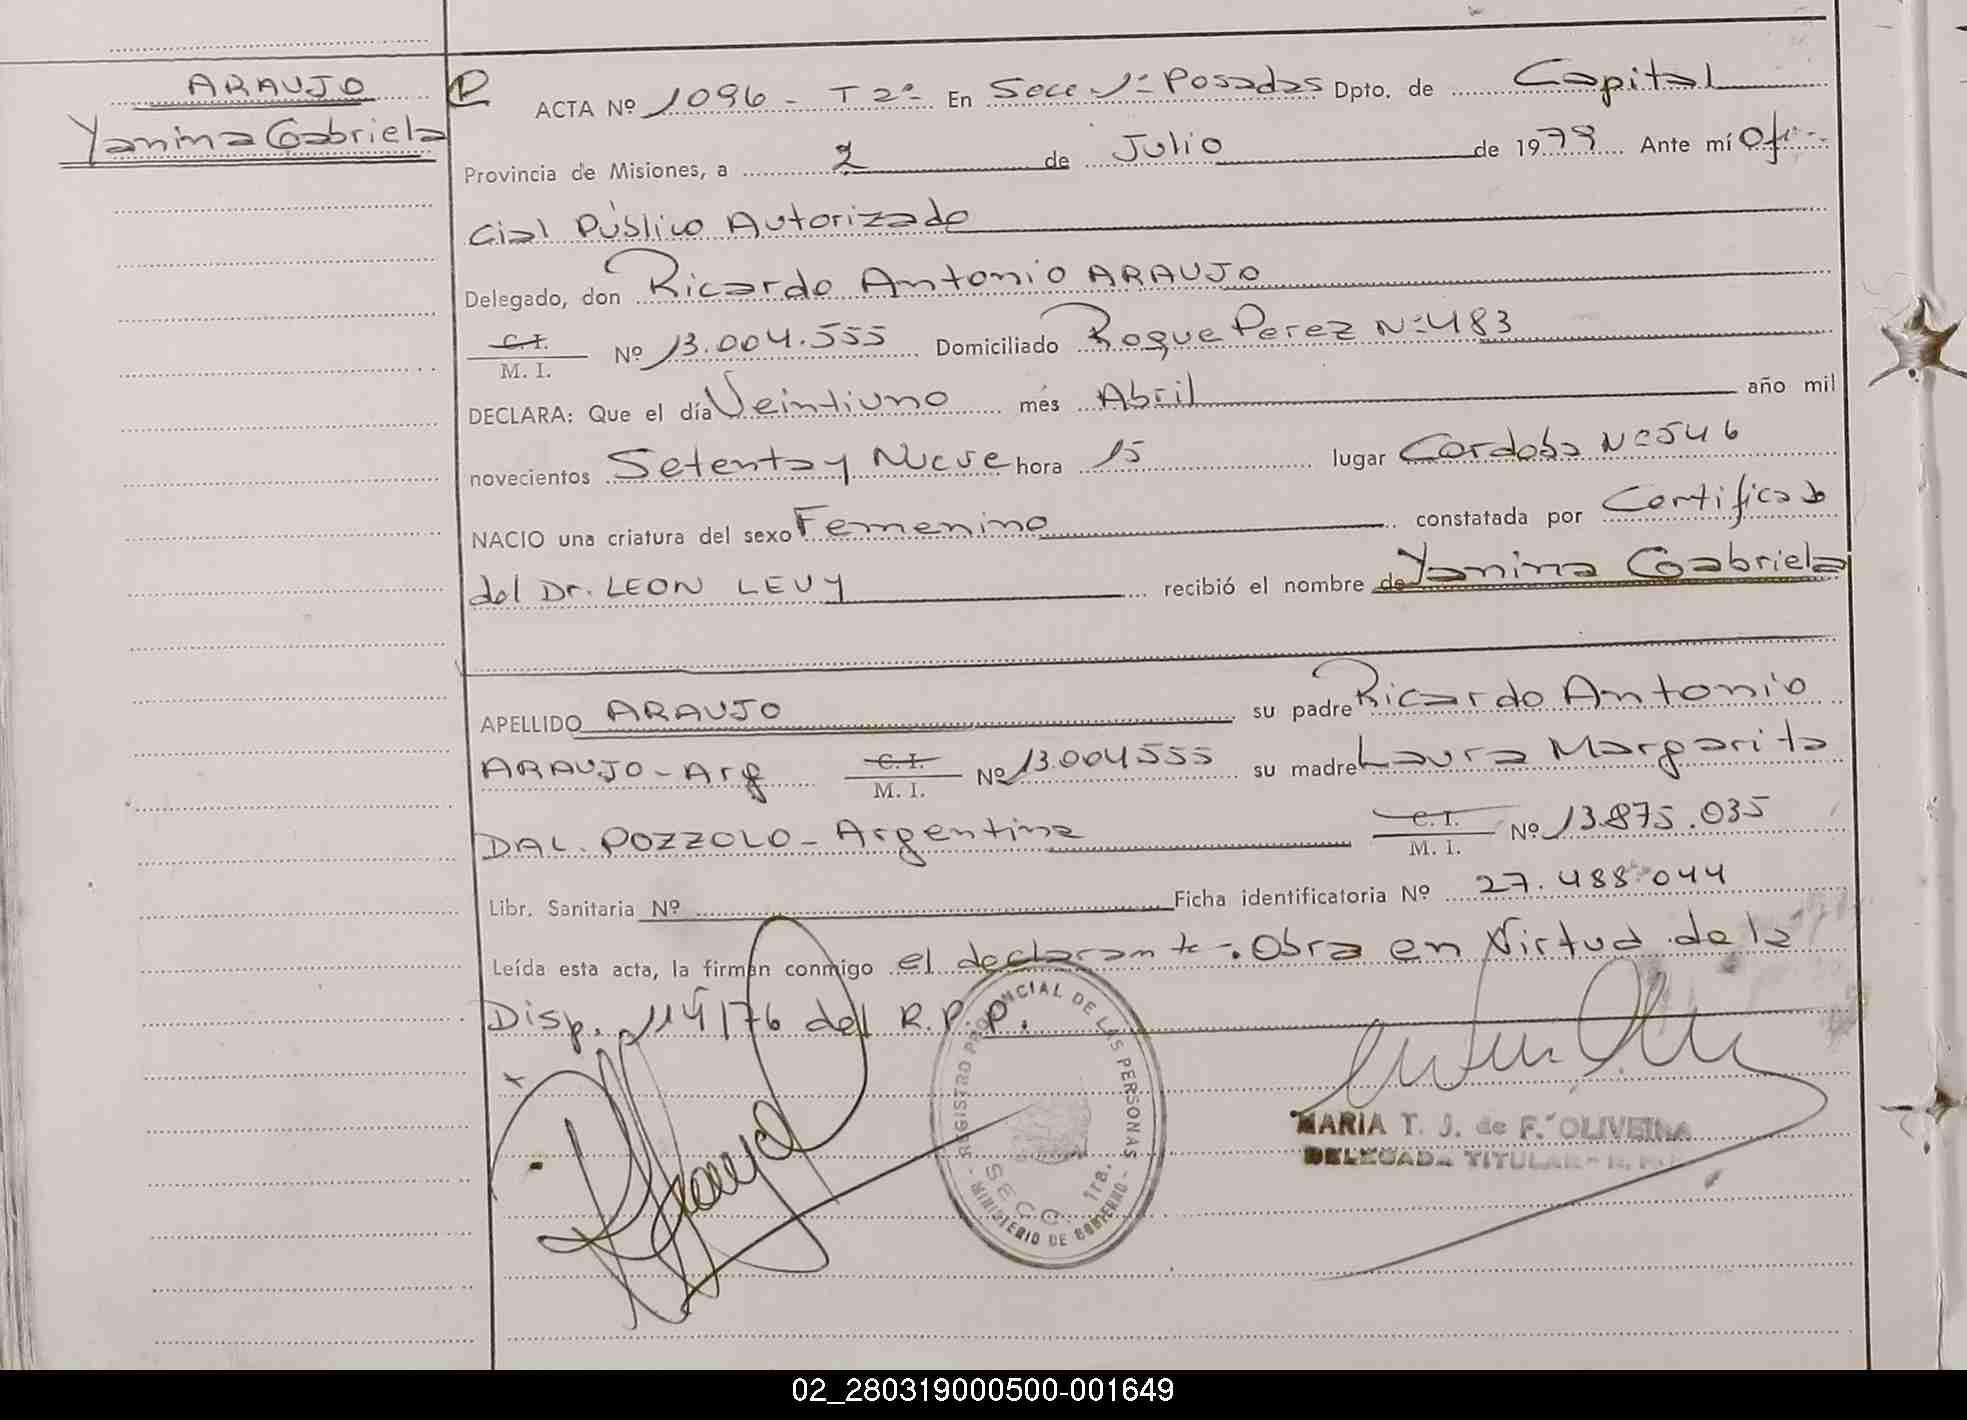 ARAUJO
Yanina Gabriela
ACTA Nº 1096 - T 2º En Secc 1ª Posadas Dpto. de Capital
Provincia de Misiones, a 2 de Julio de 1979 Ante mí Ofi-
cial Público Autorizado
Delegado, don Ricardo Antonio ARAUJO
C.I.
M. I. Nº 13.004.555 Domiciliado Roque Perez Nº 483
DECLARA: Que el día Veintiuno més Abril año mil
novecientos Setenta y Nueve hora 15 lugar Cordoba Nº 546
NACIO una criatura del sexo Femenino constatada por Certificado
del Dr. LEON LEVY recibió el nombre de Yanina Gabriela
APELLIDO ARAUJO su padre Ricardo Antonio
ARAUJO - Arg C.I. M. I. Nº 13.004555 su madre Laura Margarita
DAL. POZZOLO - Argentina C.I. M. I. Nº 13.875.035
Libr. Sanitaria Nº Ficha identificatoria Nº 27.488.044
Leída esta acta, la firman conmigo el declarante -. Obra en Virtud de la
Disp. 114/76 del R.P.P.
REGISTRO PROVINCIAL DE LAS PERSONAS
SECC. 1ra.
- MINISTERIO DE GOBIERNO -
MARIA T. J. de F. OLIVEIRA
DELEGADA TITULAR
02_280319000500-001649